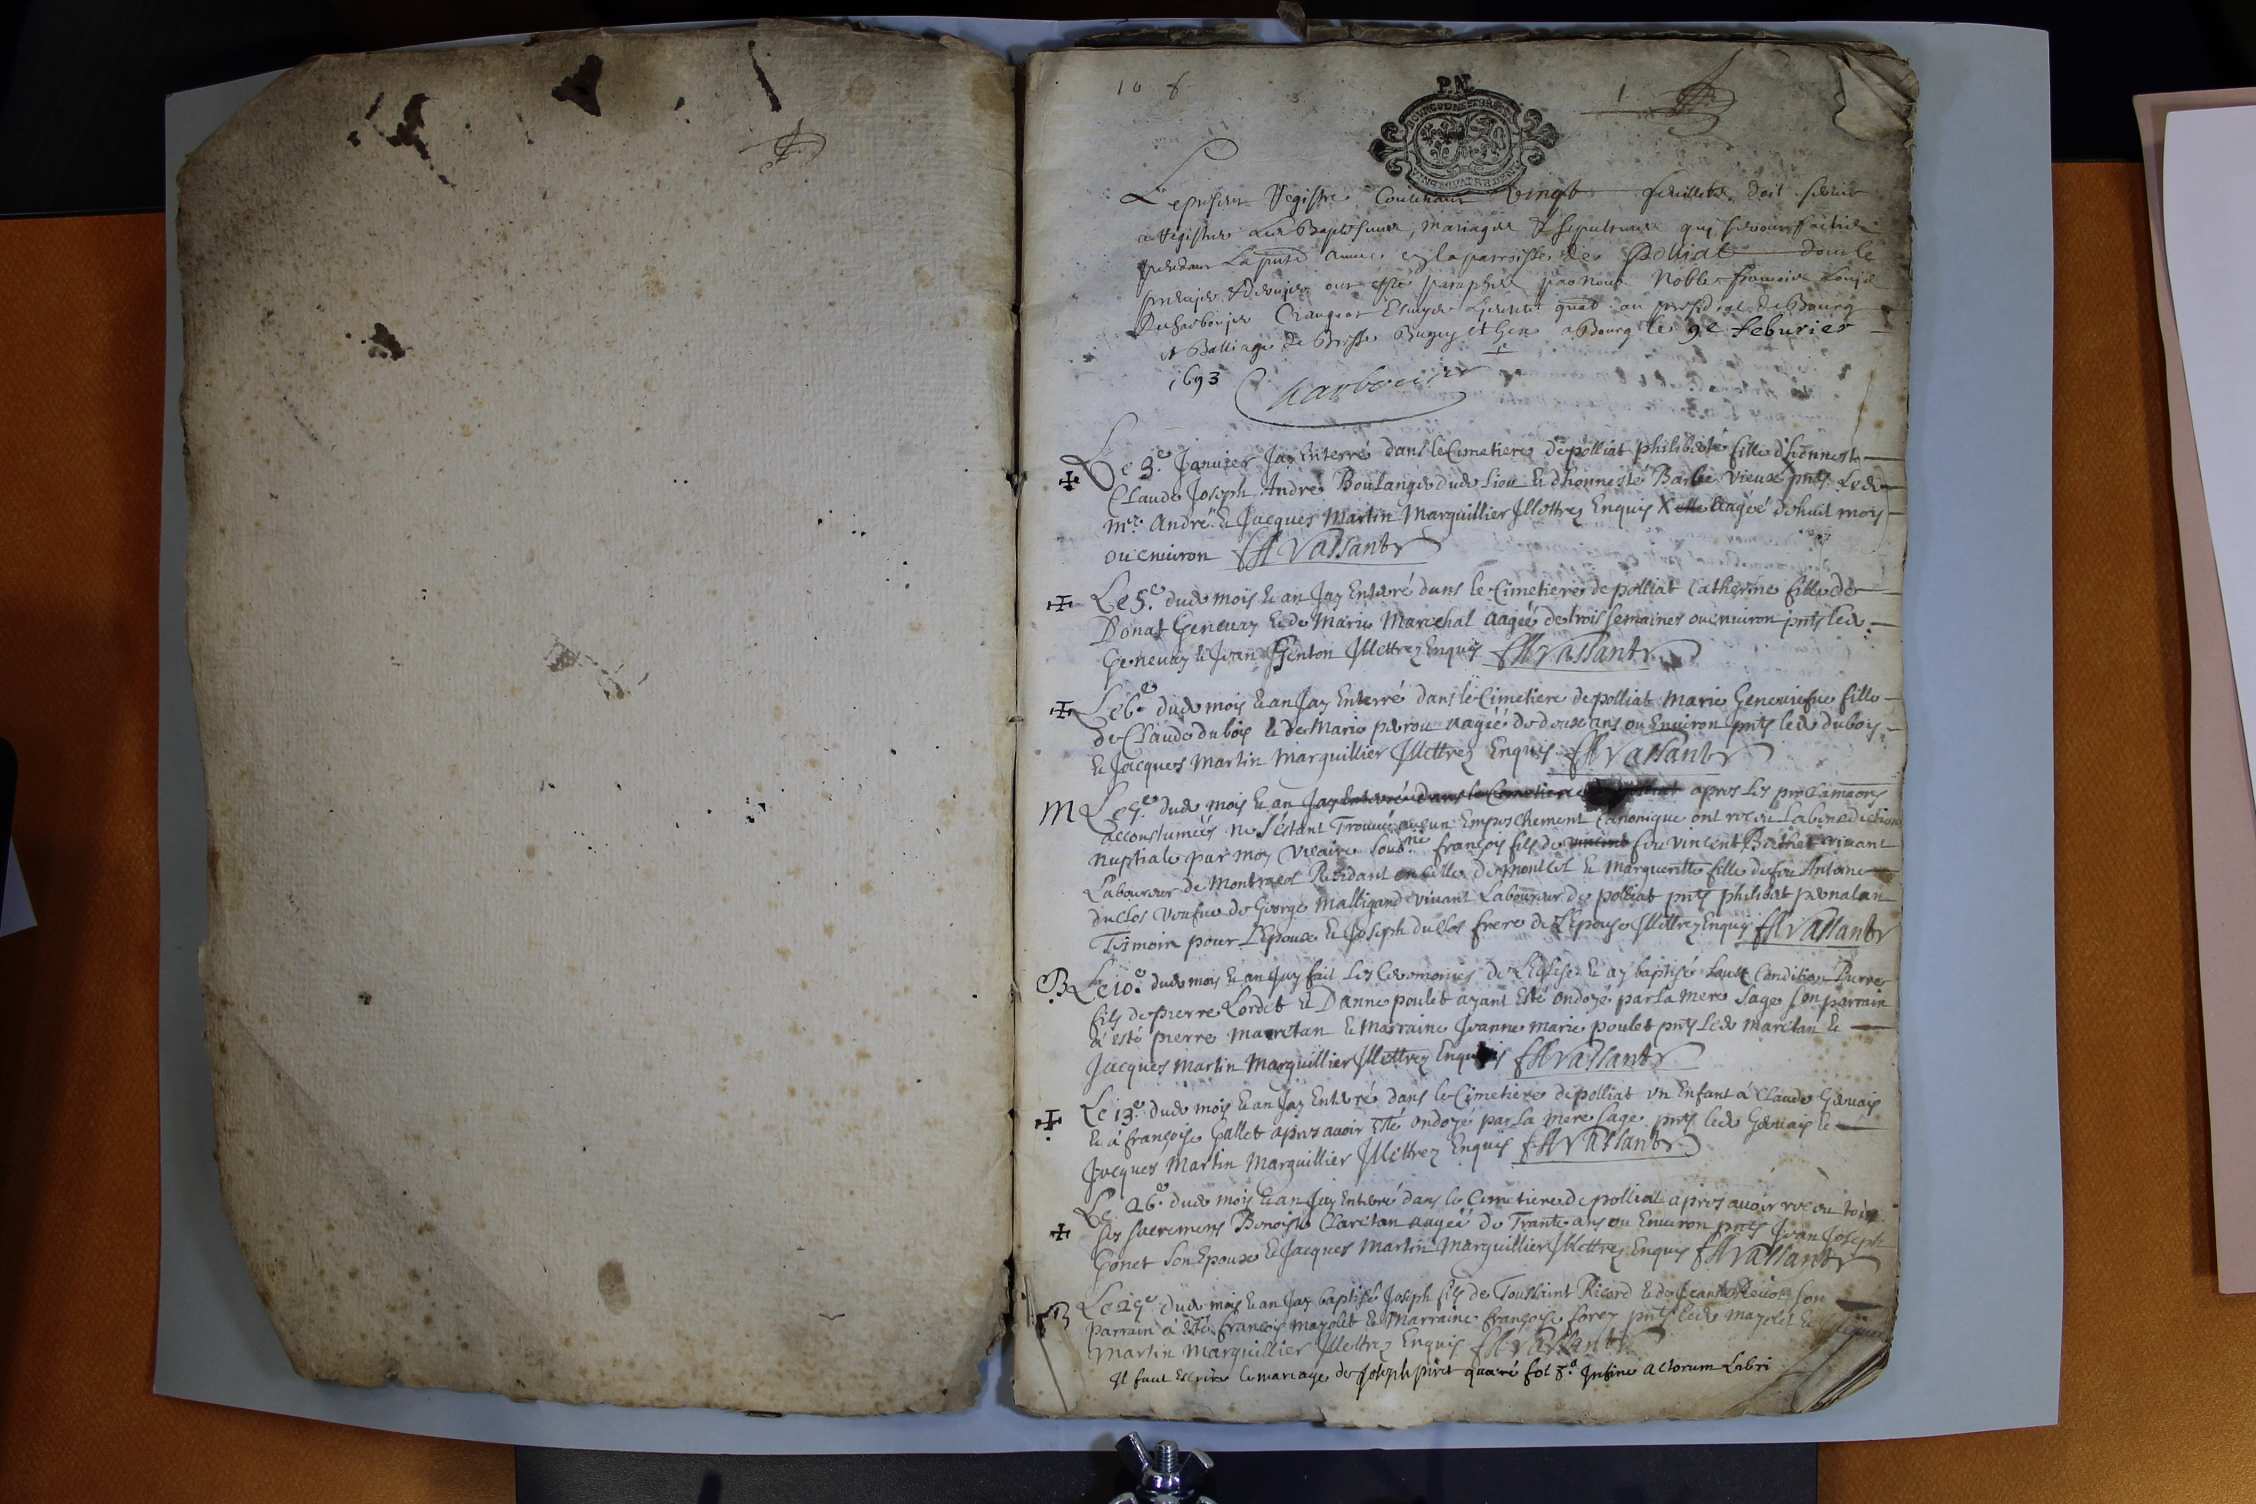 10 f
P.N.
1
Le present Registre Contenant vingt feuillets doit servir
a Registrer Les Baptesmes, mariages & sepultures qui seront faitte
pendant La pnte année en la parroisse de Polliat dont le
premier & dernier ont esté paraphés par nous Noble francois
Charbonier Crangeac Escuyer Lieutent gnal au presidial de Bourg
et Balliage de Bresse Bugey et Gex a Bourg le 9e feburier
1693 Charbonier
Le 3.e Januier Jay Enterré dans le Cimetiere de polliat philiberte fille d'honneste
Claude Joseph André Boulanger dud Lieu & d'honneste Barbe vieux pnts Led
mre André & Jacques Martin Marguillier Jllettrez Enquis X elle aagée d'huit mois
ou enuiron Vassant
Le 5.e dud mois & an Jay Enterré dans le Cimetiere de polliat Catherine fille de
Donat Geneuay & de Marie Marechal aagée de trois semaines ou enuiron pnts led
Geneuay & Jean Genton Jllettrez Enquis Vassant
Le 6.e dud mois & an Jay Enterré dans le Cimetiere de polliat Marie Geneuiefue fille
de Claude dubois & de Marie perou aagée de deux ans ou Enuiron pnts led dubois
& Jacques Martin Marguillier Jllettrez Enquis Vassant
M Le dud mois & an Jay Enterré dans le Cimetiere apres les proclamaons
accoustumées ne s'estant Trouué aucun Empeschement Canonique ont receu La benediction
nuptiale par moy Vicaire soubné françois fils de vincent feu vincent viuant
Laboureur de Montracol Residant en celle de Montcet & Margueritte fille de feu Antoine
duclos veufue de George Malligand viuant Laboureur de polliat pnts philibert
Tesmoin pour L'Epoux & Joseph duclos frere de L'Epouse Jllettrez Enquis Vassant
B Le 10.e dud mois & an Jay fait Les Ceremonies de L'Eglise & ay baptisé sous Condition Pierre
fils de pierre Cordet & D'anne poulet ayant Esté ondoyé par La mere sage son parrain
a esté pierre maretan & Marraine Jeanne marie poulet pnts Led maretan &
Jacques Martin Marguillier Jllettrez Enquis Vassant
Le 13.e dud mois & an Jay Enterré dans le Cimetiere de polliat vn Enfant á Claude Geruais
& á françoise Gallet apres auoir Esté ondoyé par La mere sage pnts led Geruais &
Jacques Martin Marguillier Jllettrez Enquis Vassant
Le 26.e dud mois & an Jay Enterré dans le Cimetiere de polliat apres auoir receu tous
les sacremens Benoiste Claretan aagée de Trante ans ou Enuiron pnts Jean Joseph
Gonet son Epoux & Jacques Martin Marguillier Jllettrez Enquis Vassant
B Le dud mois & an Jay baptisé Joseph fils de Toussaint Ricard & de son
parrain á Esté françois mazolet & Marraine françoise pnts led mazolet & Jacques
Martin Marguillier Jllettrez Enquis Vassant
Il faut Escrire le mariage de Joseph fol 3.o Jnfine actorum Libri